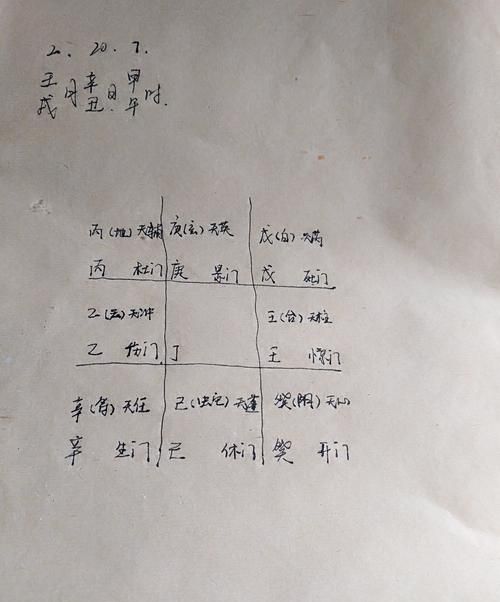 2. 20. 7.
壬 辛 甲
戌月丑日午时.
丙(地)天辅 庚(玄)天英 戊(白)天芮
丙 杜门 庚 景门 戊 死门
乙(天)天冲 壬(合)天柱
乙 伤门 丁 壬 惊门
辛(符)天任 己(蛇)天蓬 癸(阴)天心
辛 生门 己 休门 癸 开门